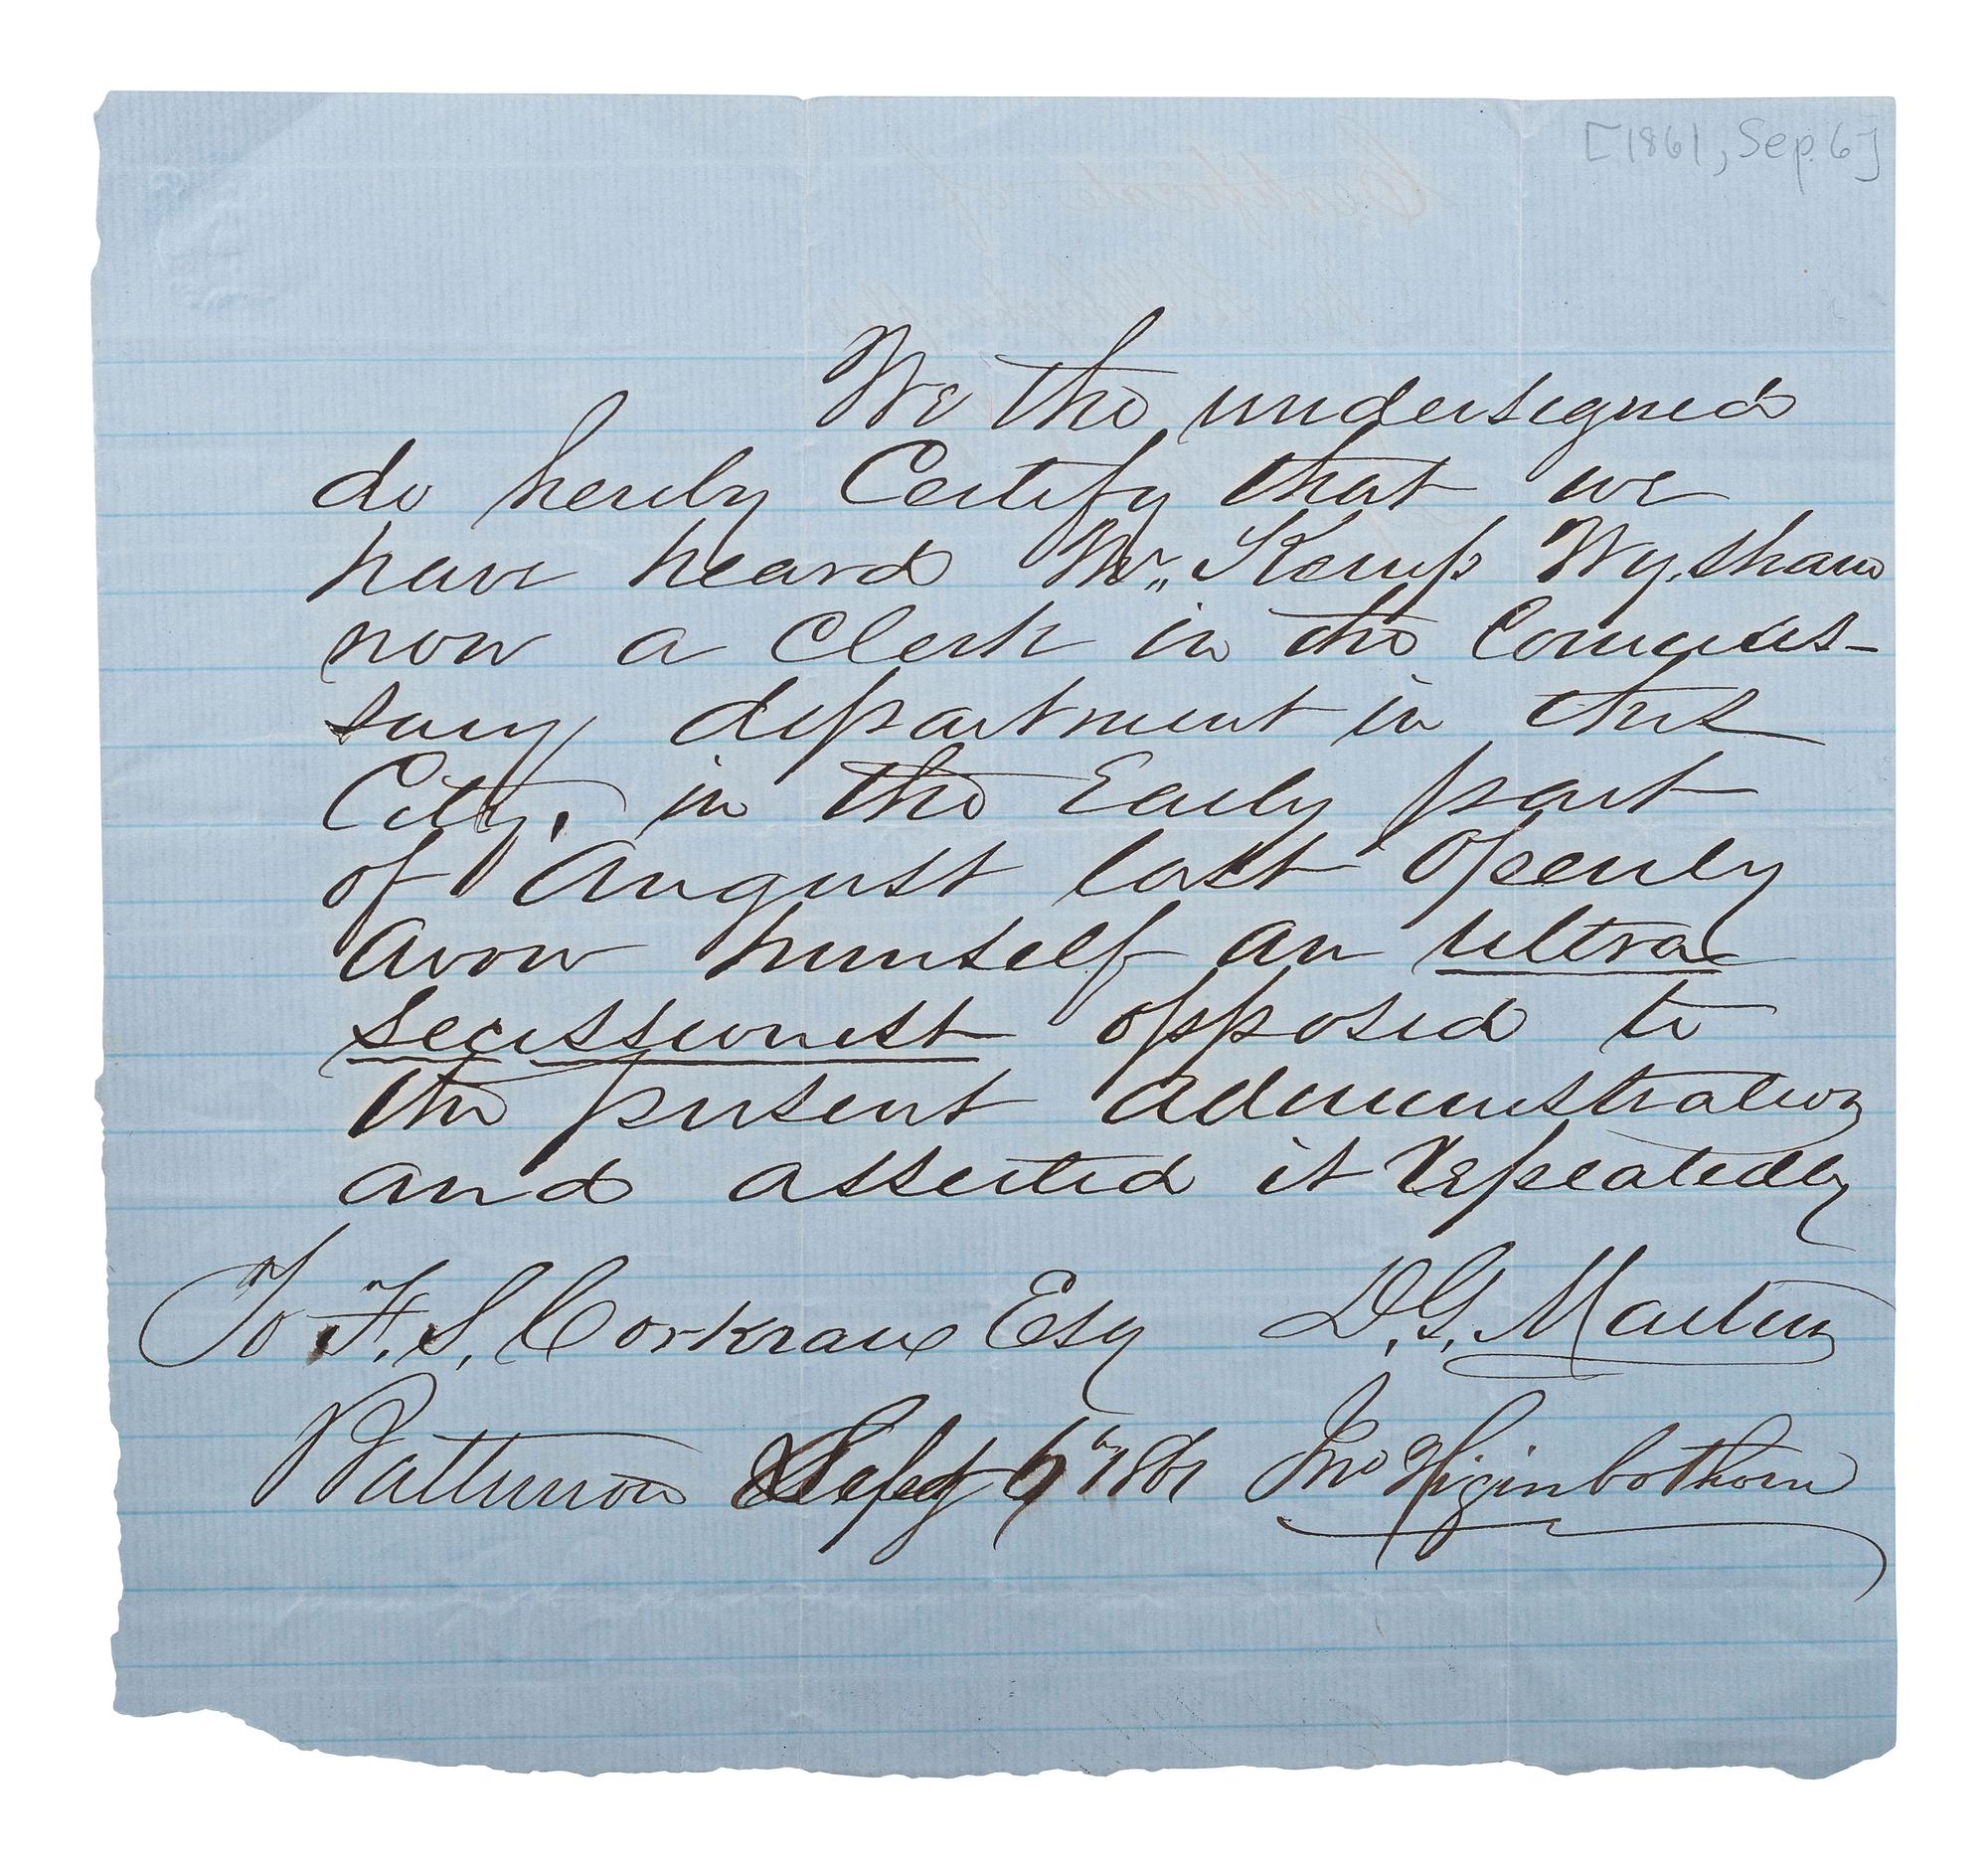 [1861, Sep. 6]
We the undersigned
do hereby Certify that we
have heard Mr,, Kemp Wysham
now a Clerk in the Commis-
sary department in this
City, in the Early part
of August last Openly
Avow himself an ultra
Secessionist opposed to
the present administration
and asserted it repeatedly
To F. S. Corkran Esq D. G. Martin
Sept 6th 1861 Jno Higinbothom